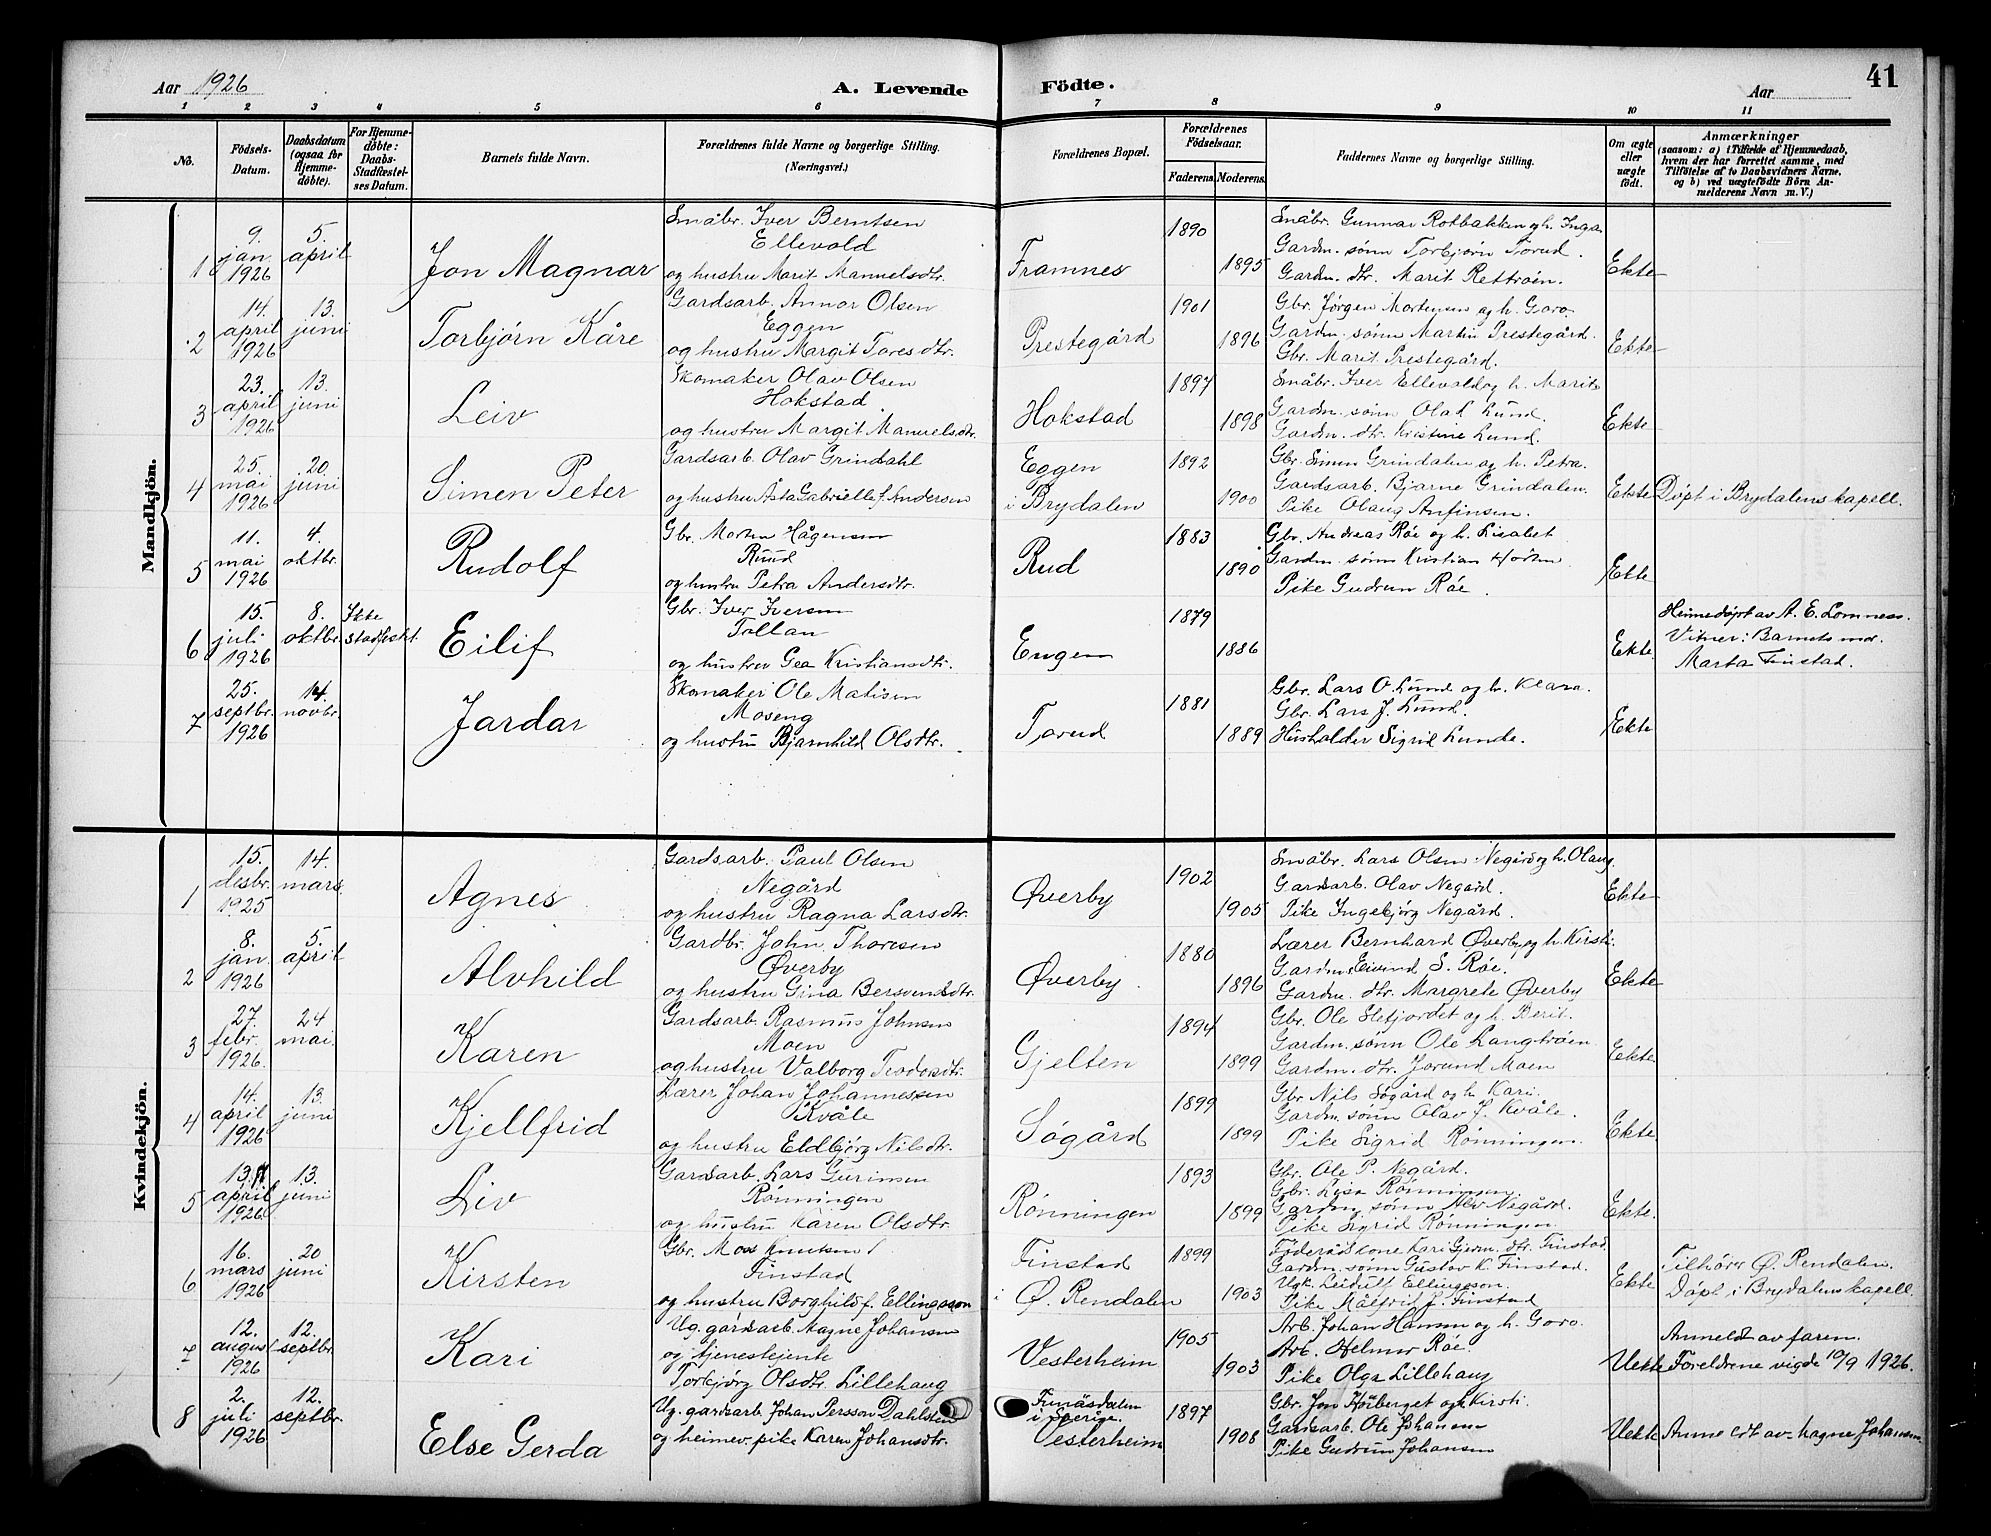 Aar 1926
A. Levende Födte.
Aar
41
1 2 3 4 5 6 7 8 9 10 11
No.
Födsels-Datum.
Daabsdatum (ogsaa for Hjemme-døbte).
For Hjemme-døbte: Daabs-Stadfæstel-ses Datum.
Barnets fulde Navn.
Forældrenes fulde Navne og borgerlige Stilling. (Næringsvei.)
Forældrenes Bopæl.
Forældrenes Födselsaar.
Faderens. Moderens.
Faddernes Navne og borgerlige Stilling.
Om ægte eller uægte födt.
Anmærkninger
(saasom: a) i Tilfælde af Hjemmedaab, hvem der har forrettet samme, med Tilføielse af to Daabsvidners Navne, og b) ved uægtefødte Börn Anmelderens Navn m. V.)
Mandkjön.
1
9. jan. 1926
5. april
Jon Magnar
Småbr. Iver Berntsen
Ellevold
og hustru Marit Manuelsdtr.
Framnes
1890
1895
Småbr. Gunnar Rotbakken og h. Inga
Gardm. sønn Torbjørn Torud.
Gardm. dtr. Marit Rettrøen.
Ekte
2
14. april 1926
13. juni
Torbjørn Kåre
Gardsarb. Annar Olsen
Eggen
og hustru Margit Toresdtr.
Prestegård
1901
1896
Gbr. Jørgen Mortensen og h. Goro.
Gardm. sønn Martin Prestegård.
Gbr. Marit Prestegård.
Ekte
3
23. april 1926
13. juni
Leiv
Skomaker Olav Olsen
Hokstad.
og hustru Margit Manuelsdtr.
Hokstad
1897
1898
Småbr. Iver Ellevold og h. Marit
Gardm. sønn Olaf Lund.
Gardm. dtr. Kristine Lund.
Ekte
4
25. mai 1926
20. juni
Simen Peter
Gardsarb. Olav Grindahl
og hustru Åsta Gabrielle f. Andersen
Eggen
i Brydalen
1892
1900
Gbr. Simen Grindalen og h. Petra.
Gardsarb. Bjarne Grindalen.
Pike Olaug Anfinsen.
Ekte
Døpt i Brydalens kapell.
5
11. mai 1926
4. oktbr.
Rudolf
Gbr. Morten Hågensen
Ruud
og hustru Petra Andersdtr.
Rud
1883
1890
Gbr. Andreas Røe og h. Lisabet
Gardm. sønn Kristian
Pike Gudrun Røe.
Ekte
6
15. juli 1926
8. oktbr.
Ikke stadfestet.
Eilif
Gbr. Iver Iversen
Tollan
og hustru Gea Kristiansdtr.
Engen
1879
1886
Ekte
Heimedøpt av A. E. Lomness.
Vitner: Barnets mor.
Marta Finstad.
7
25. septbr. 1926
14. novbr.
Jardar
Skomaker Ole Matisen
Moseng
og hustru Bjarnhild Olsdtr.
Torud
1881
1889
Gbr. Lars O. Lund og h. Klara.
Gbr. Lars J. Lund.
Husholder Sigrid Lunde.
Ekte
Kvindekjön.
1
15. desbr. 1925
14. mars
Agnes
Gardsarb. Paul Olsen
Negård
og hustru Ragna Larsdtr.
Øverby
1902
1905
Småbr. Lars Olsen Negård og h. Olaug
Gardsarb. Olav Negård.
Pike Ingebjørg Negård.
Ekte
2
8. jan. 1926
5. april
Alvhild
Gardbr. John Thoresen
Øverby
og hustru Gina Bersvendsdtr.
Øverby.
1880
1896
Lærer Bernhard Øverby og h. Kirsti
Gardm. Eivind S. Røe.
Gardm. dtr. Margrete Øverby
Ekte
3
27. febr. 1926.
24 mai.
Karen
Gardsarb. Rasmus Johnsen
Moen
og hustru Valborg Teodorsdtr.
Gjelten
1894
1899
Gbr. Ole Sletjordet og h. Berit.
Gardm. sønn Ole Langtrøen.
Gardm. dtr. Jorund Moen
Ekte
4
14. april 1926
13. juni
Kjellfrid
Lærer Johan Johannessen
Kvåle
og hustru Eldbjørg Nilsdtr.
Søgård
1899
1899
Gbr Nils Søgård og h. Kari.
Gardm. sønn Olav J. Kvåle.
Pike Sigrid Rønningen.
Ekte
5
13. april 1926
13. juni
Liv
Gardsarb. Lars Gurinsen
Rønningen
og hustru Karen Olsdtr.
Rønningen
1893
1899
Gbr. Ole P. Negård.
Gbr. Lisa Rønningen.
Gardm. sønn Alv Negård.
Pike Sigrid Rønningen.
Ekte.
6
16. mars 1926
20 juni
Kirsten
Gbr. Moss Knutsen
Finstad
og hustru Borghild f. Ellingsson
Finstad
i Ø. Rendalen
1899
1903
Føderådskone Kari Gjerm. dtr. Finstad.
Gardm. sønn Gustav K. Finstad.
Ugk. Leidulf Ellingsson.
Pike Målfrid J. Finstad
Ekte
Tilhører Ø. Rendalen.
Døpt i Brydalens kapell
7
12. august 1926
12. septbr.
Kari
Ug. gårdsarb. Magne Johansen
og tjenestejente
Torbjørg Olsdtr. Lillehaug
Vesterheim
1905
1903
Arb. Johan Hansen og h. Goro.
Arb. Helmer Røe.
Pike Olga Lillehaug
Uekte
Anmeldt av faren.
Foreldrene vigde 10/9 1926.
8
2. juli 1926
12. septbr.
Else Gerda
Ug. gardsarb. Johan Persson Dahlsten
og heimev. pike Karen Johansdtr.
Funäsdalen
i Sverige.
Vesterheim
1897
1908
Gbr. Jon Høiberget og h. Kirsti.
Gardsarb. Ole Johansen
Pike Gudrun Johansen
Uekte
Anmeldt av Magne Johansen